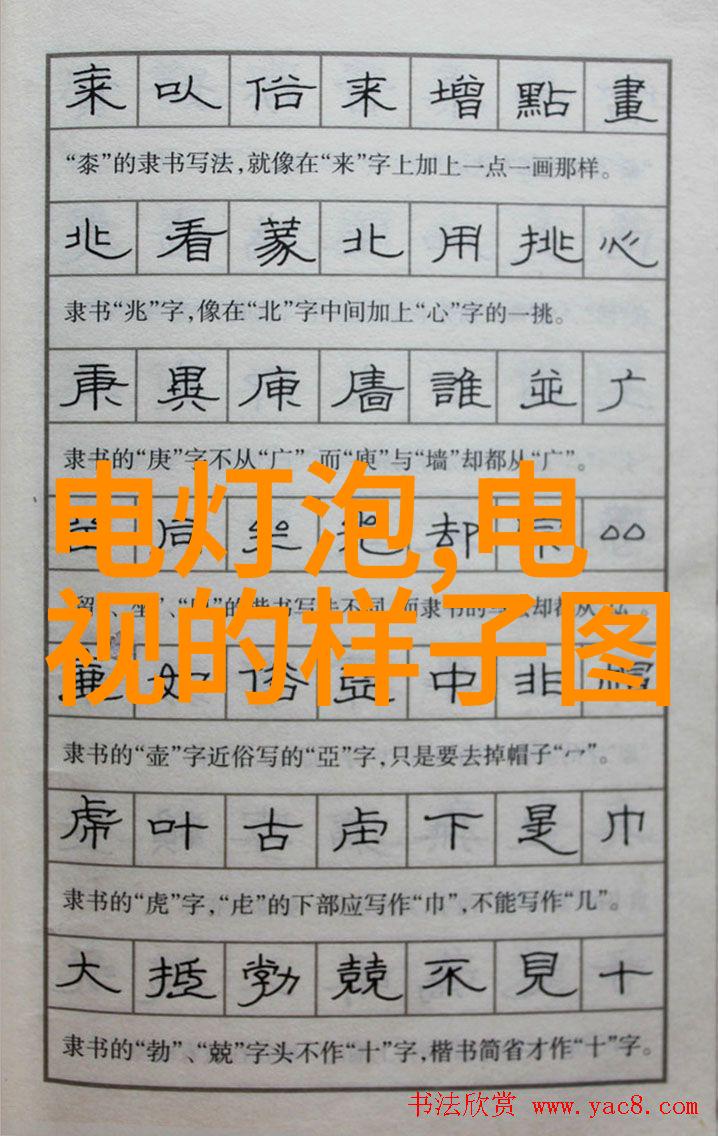 来 以 俗 来 增 點 畫
“桼”的隶书写法，就像在“来”字上加上一点一画那样。
兆 看 蒙 北 用 挑 心
隶书“兆”字，像在“北”字中间加上“心”字的一挑。
庚 異 庾 墙 誰 並 广
隶书的“庚”字不从“广” 而“庾”与“墙”却都从“广”。
电灯泡,电
视的样子图
却
隶书的 却都从
如 俗 亞 中 非 帽
隶书的“壶”字近俗写的“亞”字，只是要去掉帽子“冖”。
虎 叶 古 虍 下 是 巾
隶书的“虎”字，“虍”的下部应写作“巾”，不能写作“几”。
大 抵 勃 兢 不 見 十
隶书的“勃”、“兢”字头不作“十”字，楷书简省才作“十”字。
书法欣赏 www.yac8.com